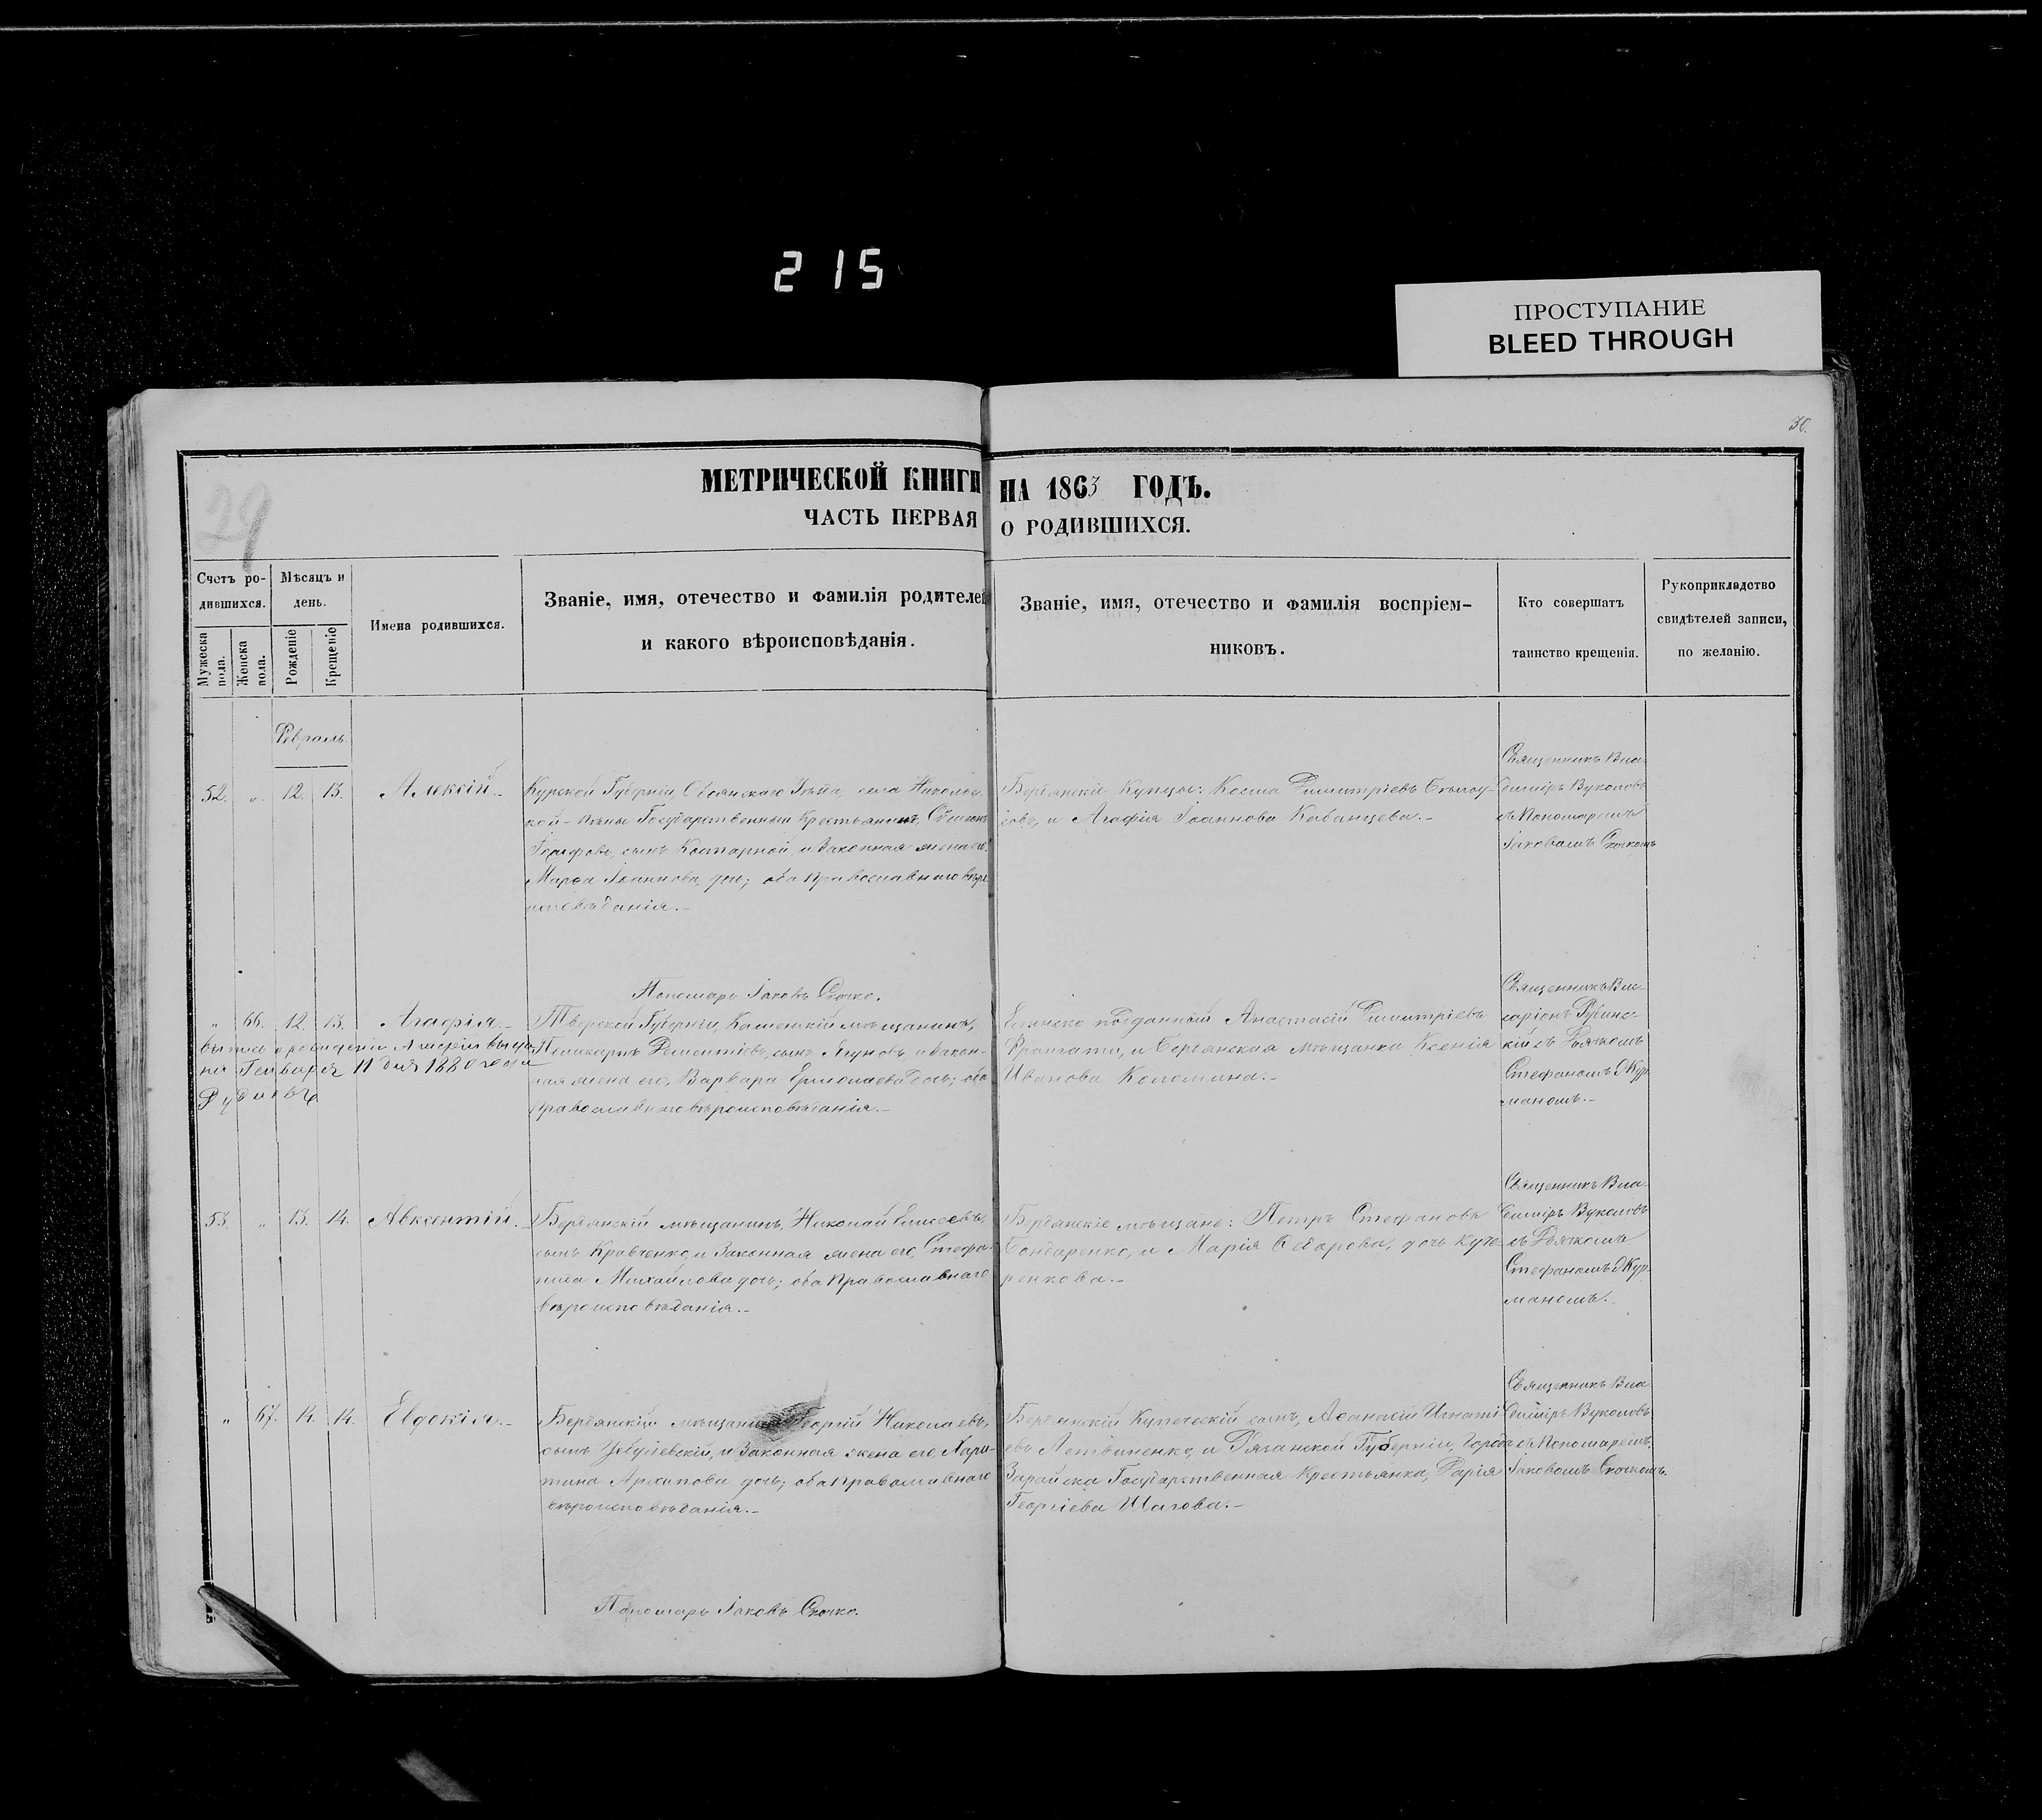 215
ПРОСТУПАНИЕ
BLEED THROUGH
30.
29
МЕТРИЧЕСКОЙ КНИГИ НА 1863 ГОДЪ.
ЧАСТЬ ПЕРВАЯ О РОДИВШИХСЯ.
Счетъ ро-
дившихся.
Мужеска пола.
Женска пола.
Мѣсяцъ и
день.
Рожденіе
Крещеніе
Имена родившихся.
Званіе, имя, отечество и фамилія родителей
и какого вѣроисповѣданія.
Званіе, имя, отечество и фамилія воспріем-
никовъ.
Кто совершатъ
таинство крещенія.
Рукоприкладство
свидѣтелей записи,
по желанію.
Февраль.
52. „ 12. 13. Алексій.
Курской Губерніи, Обоянскаго Уѣзда, села
Государственный Крестьянинъ,
сынъ и Законная жена его,
Іоаннова дочь; оба Православнаго вѣро-
исповѣданія.
Бердянскіе Купцы: Косма Димитріевъ
и Агафія Іоаннова Кабанцева.
Священникъ Вла-
димиръ Вуколовъ
съ Пономаремъ
Іаковомъ Скочкомъ
Пономарь Іаковъ Скочко.
„ 66. 12. 13. Агафія.
Выпись о рожденіи Агафіи выда-
на Генваря 11 дня 1880 года
Тверской Губерніи, Кашенскій мѣщанинъ,
Поликарпъ Дементіевъ, сынъ и Закон-
ная жена его, Варвара Ермолаева дочь; оба
Православнаго вѣроисповѣданія.
подданный Анастасій Димитріевъ
и Бердянская мѣщанка Ксенія
Иванова Коломина.
Священникъ Вис-
саріонъ
кій съ Дьячкомъ
Стефаномъ
53. „ 13. 14. Авксентій.
Бердянскій мѣщанинъ, Николай Елисеевъ,
сынъ Кравченко, и Законная жена его, Стефа-
нида Михайлова дочь; оба Православнаго
вѣроисповѣданія.
Бердянскіе мѣщане: Петръ Стефановъ
Бондаренко, и Марія Ѳедорова, дочь Куче-
ренкова.
Священникъ Вла-
димиръ Вуколовъ
съ Дьячкомъ
Стефаномъ
„ 67. 14. 14. Евдокія.
Бердянскій мѣщанинъ Георгій Николаевъ,
сынъ и Законная жена его, Хари-
тина Архипова дочь; оба Православнаго
вѣроисповѣданія.
Бердянскій Купеческій сынъ, Аѳанасій Игнаті-
евъ Летвиненко, и Рязанской Губерніи, Города
Зарайска Государственная Крестьянка, Дарія
Георгіева Шагова.
Священникъ Вла-
димиръ Вуколовъ
съ Пономаремъ
Іаковомъ Скочкомъ.
Пономарь Іаковъ Скочко.